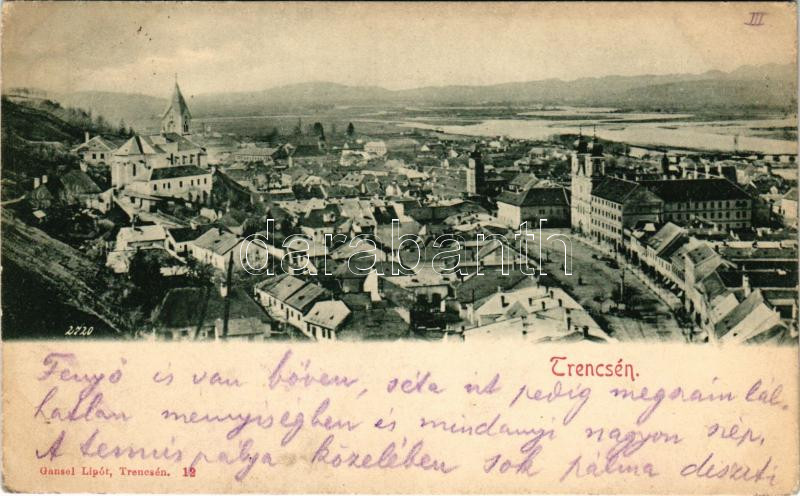 III
darabanth
2720
Trencsén.
Fenyő is van bőven, séta út pedig megszám lál-
hatlan mennyiségben és mindanyi nagyon szép.
A tennis pálya közelében sok pálma diszeti
Gansel Lipót, Trencsén. 12